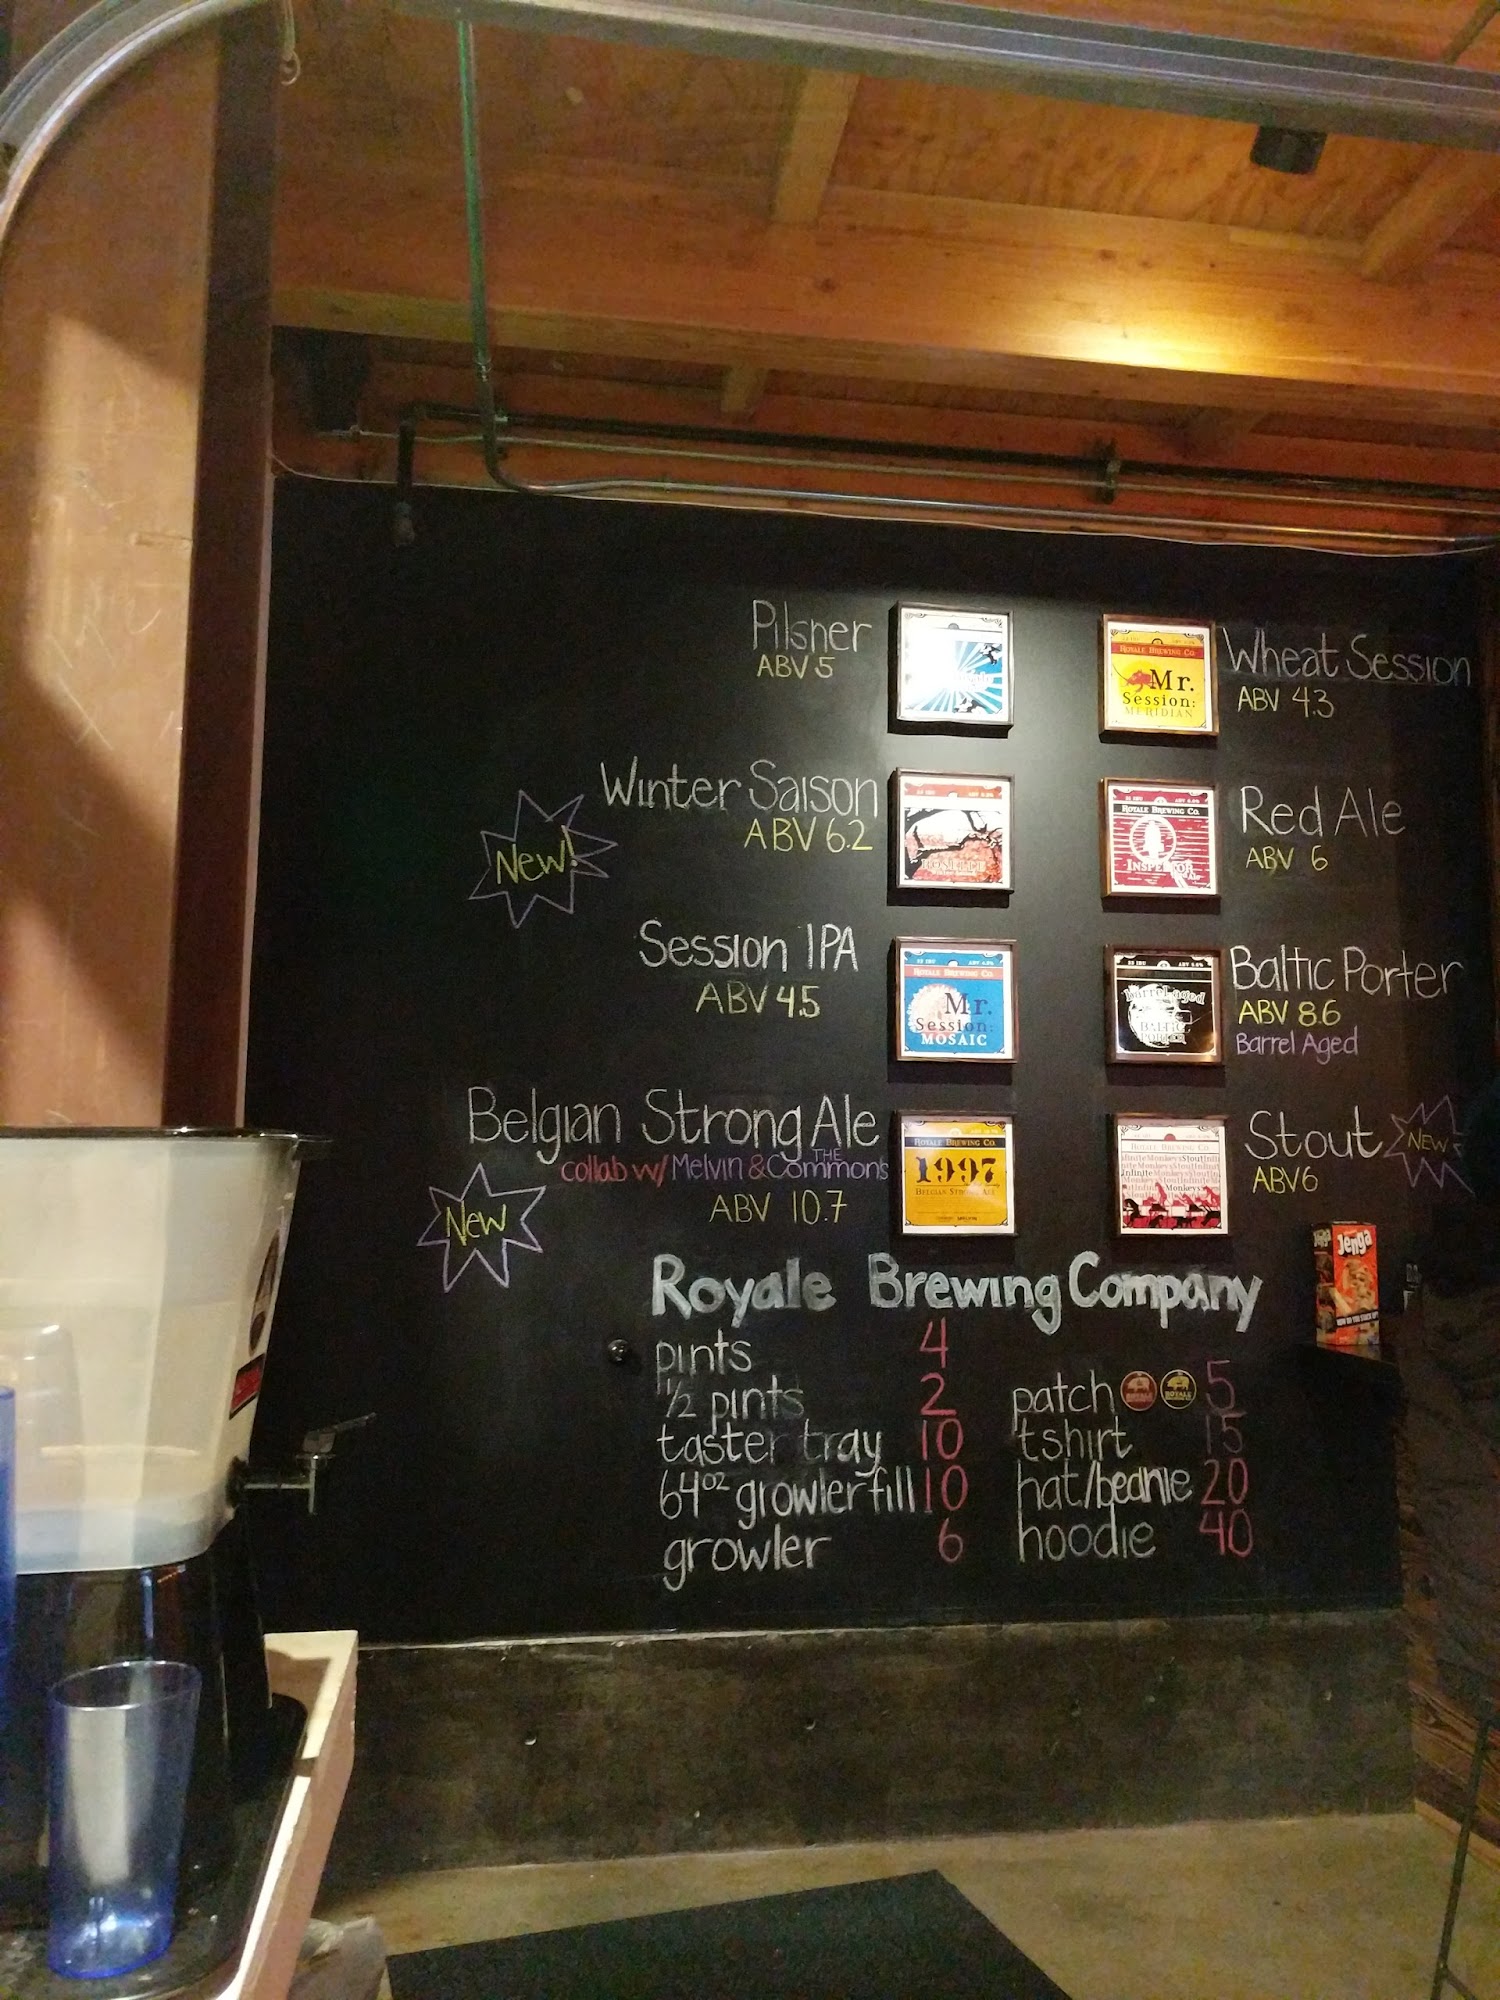 Pilsner
ABV 5
Winter Saison
ABV 6.2
New!
Session IPA
ABV 4.5
Belgian Strong Ale
collab w/ Melvin & THE Commons
ABV 10.7
New
ROYALE BREWING CO.
Mr.
Session:
MOSAIC
ROYALE BREWING CO.
1997
BELGIAN STRONG ALE
ROYALE BREWING CO.
Mr.
Session:
MERIDIAN
Wheat Session
ABV 4.3
ROYALE BREWING CO.
INSPECTOR
Red Ale
ABV 6
barrel-aged
BALTIC
PORTER
Baltic Porter
ABV 8.6
Barrel Aged
ROYALE BREWING CO.
Stout
ABV 6
NEW
Royale Brewing Company
pints 4
1/2 pints 2
taster tray 10
64oz growler fill 10
growler 6
patch ROYALE ROYALE 5
tshirt 15
hat/beanie 20
hoodie 40
Jenga
Jenga